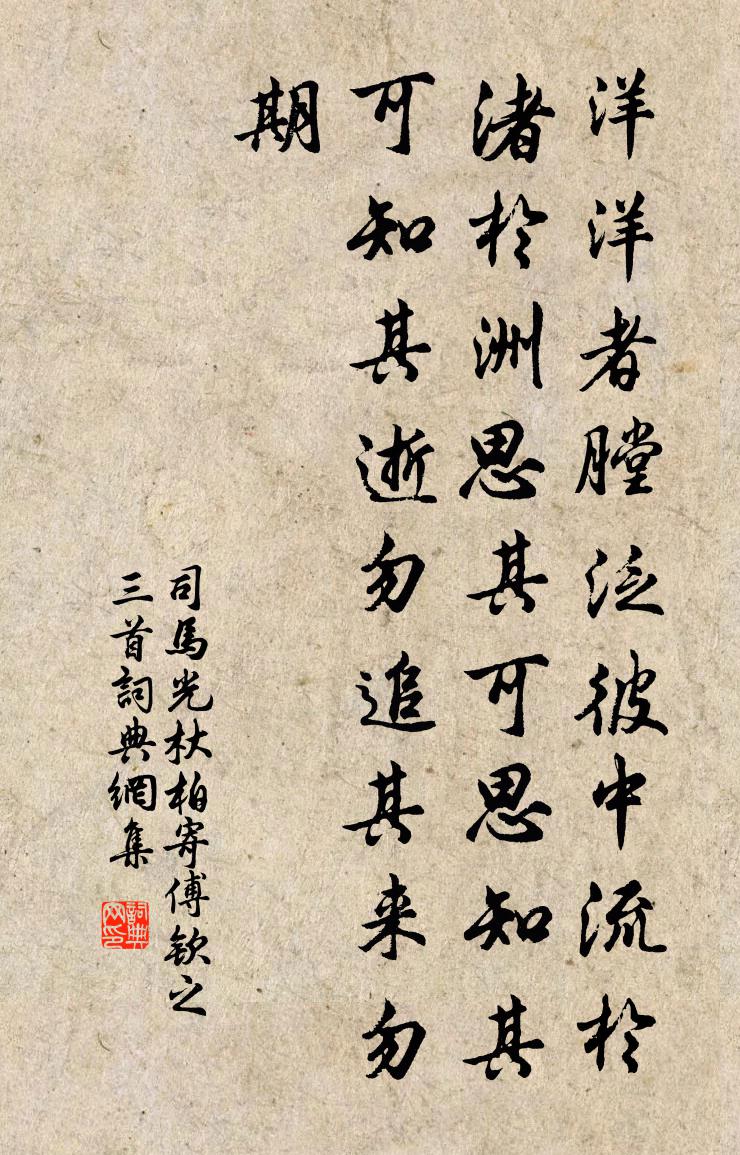 洋洋者膛泛彼中流於
渚於洲思其可思知其
可知其逝勿追其来勿
期
司馬光杖柏寄傅欽之
三首詞典網集
詞典
网印